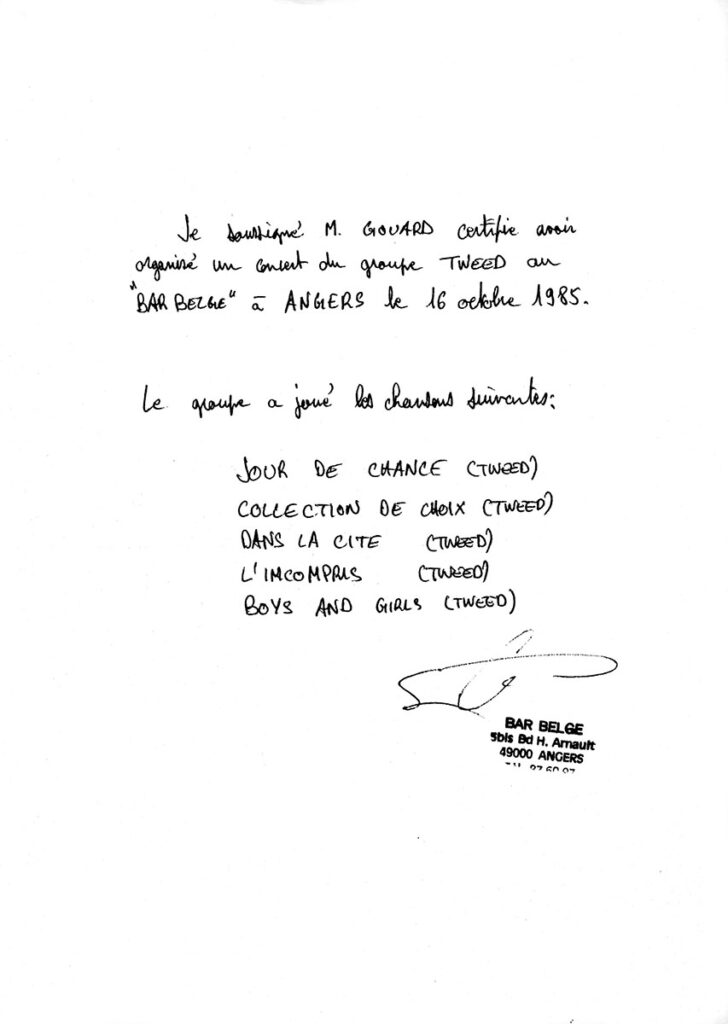 Je soussigné M. GOUARD certifie avoir
organisé un concert du groupe TWEED au
"BAR BELGE" à ANGERS le 16 octobre 1985.
Le groupe a joué les chansons suivantes:
JOUR DE CHANCE (TWEED)
COLLECTION DE CHOIX (TWEED)
DANS LA CITE (TWEED)
L'IMCOMPRIS (TWEED)
BOYS AND GIRLS (TWEED)
BAR BELGE
5bis Bd H. Arnault
49000 ANGERS